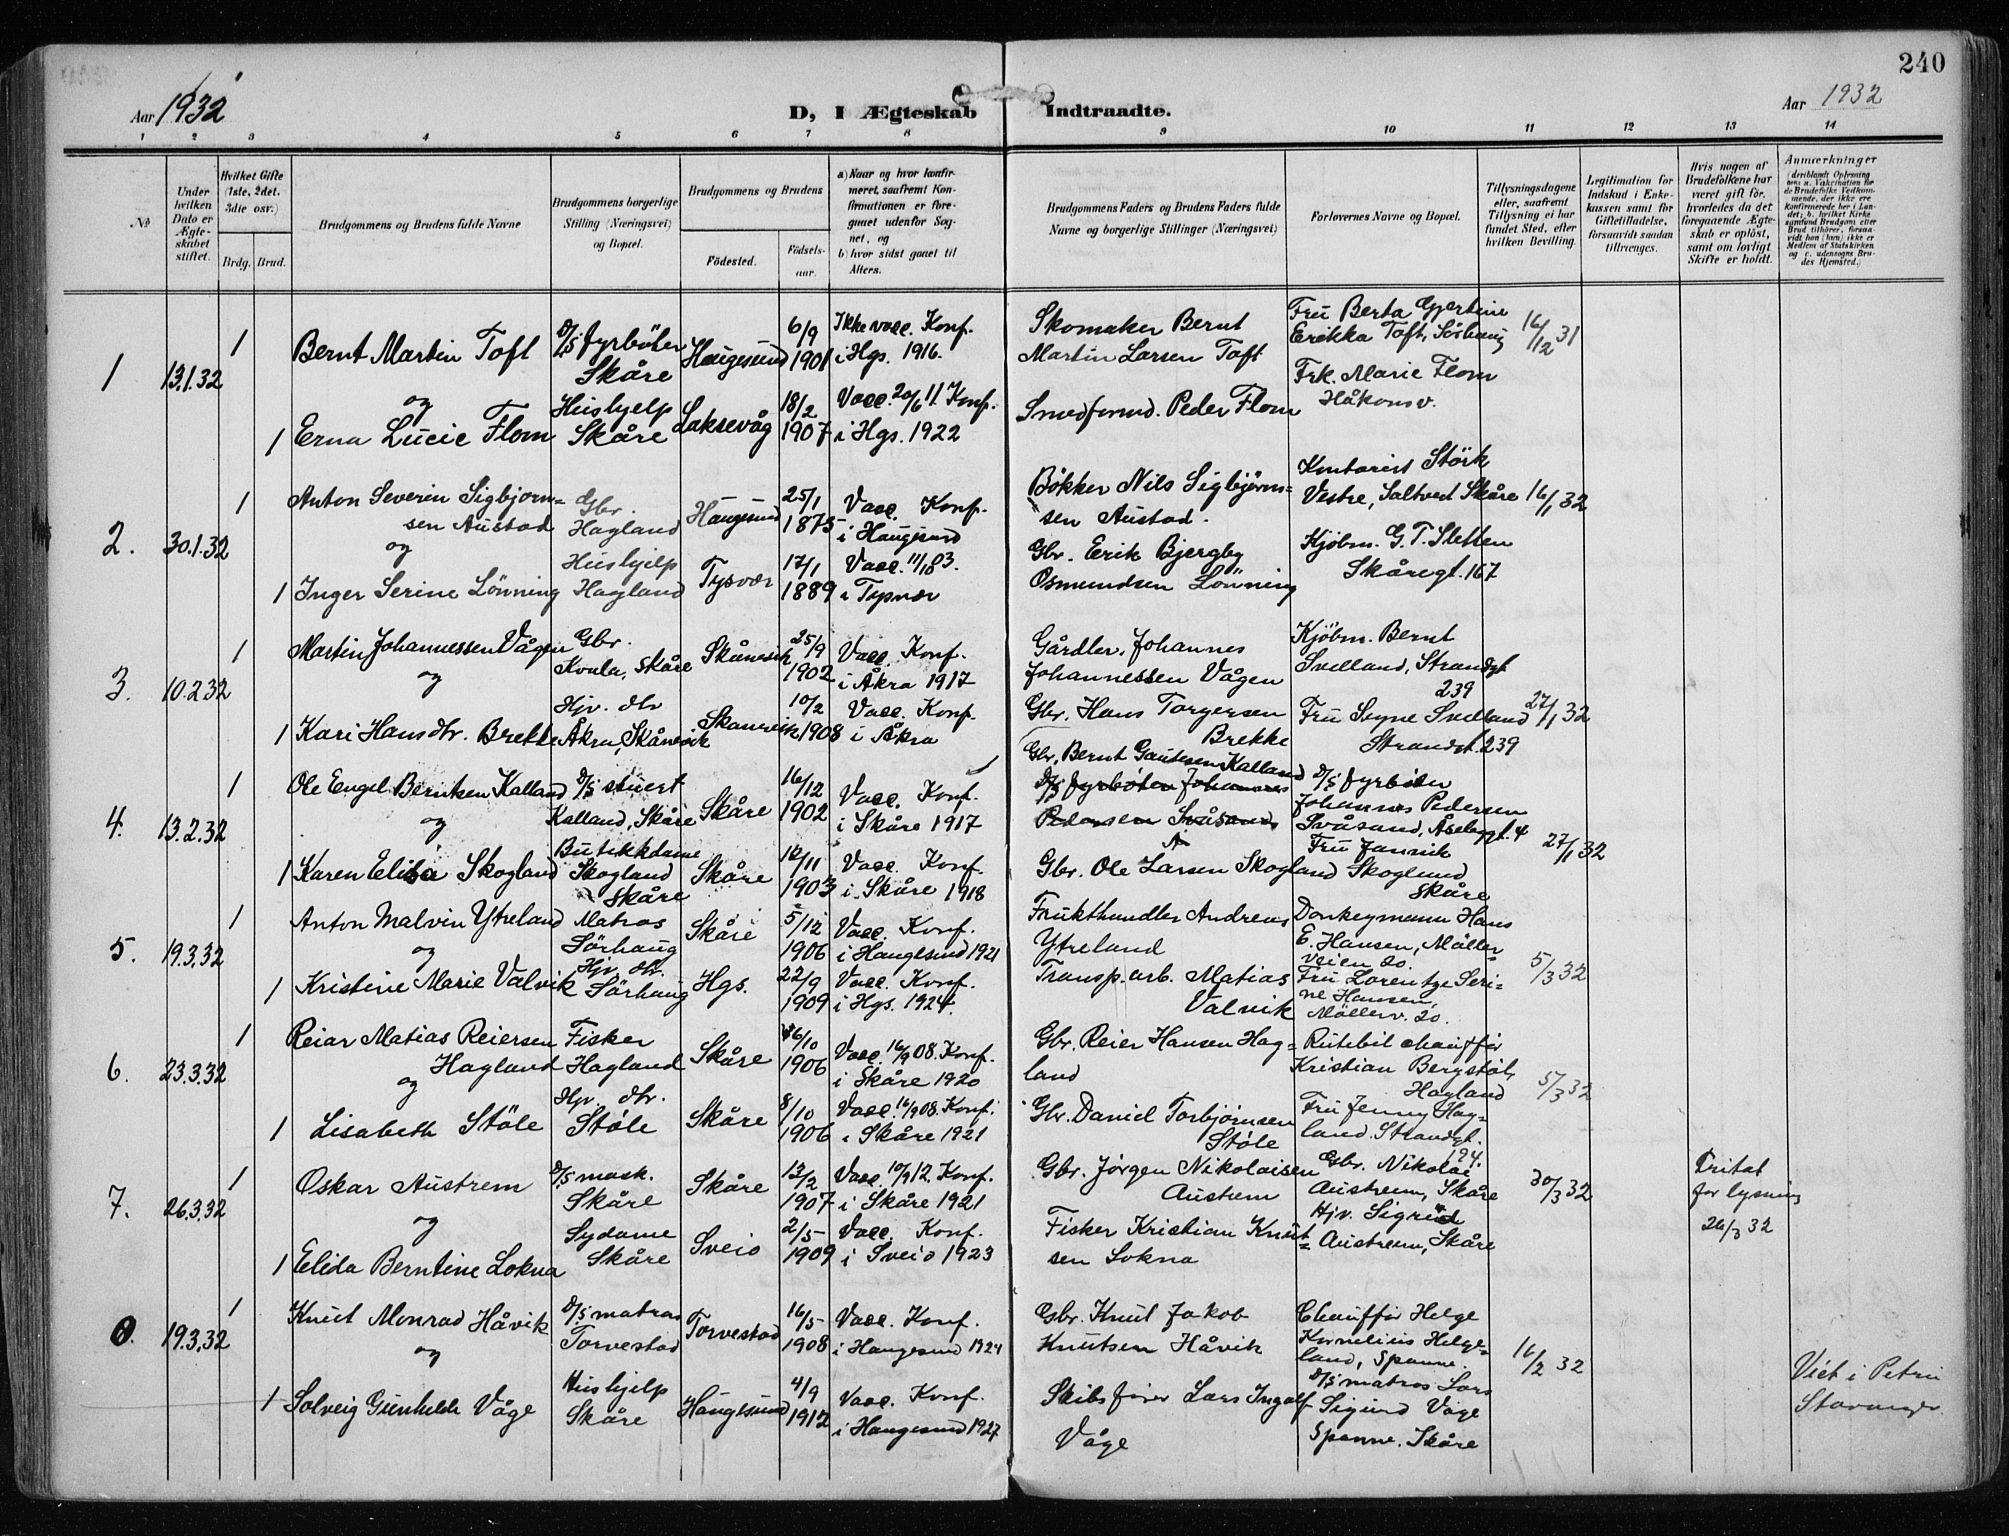 240
Aar 1932
D, I Ægteskab Indtraadte.
Aar 1932
1 2 3 4 5 6 7 8 9 10 11 12 13 14
No
Under hvilken Dato er Ægteskabet stiftet.
Hvilket Gifte (1ste. 2det. 3die osv.)
Brdg. Brud.
Brudgommens og Brudens fulde Navne
Brudgommens borgerlige Stilling (Næringsvei) og Bopæl.
Brudgommens og Brudens
Födested.
Födselsaar.
a) Naar og hvor konfirmeret, saafremt Konfirmationen er foregaaet udenfor Sognet, og
b) hvor sidst gaaet til Alters.
Brudgommens Faders og Brudens Faders fulde Navne og borgerlige Stillinger (Næringsvei)
Forlovernes Navne og Bopæl.
Tillysningsdagene eller, saafremt Tillysning ei har fundet Sted, efter hvilken Bevilling.
Legitimation for Indskud i Enkekassen samt for Giftetilladelse, forsaavidt saadan tiltrænges.
Hvis nogen af Brudefolkene har været gift för, hvorledes da det foregaaende Ægteskab er oplöst, samt om lovligt Skifte er holdt.
Anmærkninger
1 13.1.32
1 Bernt Martin Toft
D/S fyrböter
Skåre
Haugesund
6/9
1901
Ikke vacc. Konf.
i Hgs. 1916.
Skomaker Bernt
Martin Larsen Toft
Fru Berta Gjertine
Erikka Toft, Sörhaug
16/12 31
og
1 Erna Lucie Flom
Hushjelp
Skåre
Laksevåg
18/2
1907
Vacc. 20/6 11. Konf.
i Hgs. 1922
Smedformd. Peder Flom
Frk. Marie Flom
Håkonsv.
2. 30.1.32
1 Anton Severin Sigbjorn=
sen Austad
Gbr.
Hagland
Haugesund
25/1
1875
Vacc. Konf.
i Haugesund
Bökker Nils Sigbjörn=
sen Austad.
Kontorist Störk
Vestre, Saltved Skåre
16/1 32
og
1 Inger Serine Lönning
Hushjelp
Hagland
Tysvær
17/1
1889
Vacc. 11/1 83.
i Tysvær
Gbr. Erik Bjergby
Osmundsen Lönning
Kjöbm. G. T. Sletten
Skåregt. 167
3. 10.2.32
1 Martin Johannessen Vågen
Gbr.
Kvala, Skåre
Skånevik
25/9
1902
Vacc. Konf.
i Åkra 1917
Gårdbr. Johannes
Johannessen Vågen
Kjöbm. Bernt
Svelland, Strandgt
239
27/1 32
og
1 Kari Hansdtr. Brekke
Hjv. dtr
Åkra, Skånevik
Skånevik
10/2
1908
Vacc. Konf.
i Åkra
Gbr. Hans Torgersen
Brekke
Fru Signe Svelland
Strandgt. 239
4. 13.2.32
1 Ole Engel Berntsen Kalland
D/S stuert
Kalland, Skåre
Skåre
16/12
1902
Vacc. Konf.
i Skåre 1917
Gbr. Bernt Gautesen Kalland
D/S fyrböter Johannes
Pedersen Svåsand
D/S fyrböter
Johannes Pedersen
Svåsand, Åsebygt. 4
27/1 32
og
1 Karen Elise Skogland
Butikkdame
Skogland
Skåre
Skåre
12/11
1903
Vacc. Konf.
i Skåre 1918
Gbr. Ole Larsen Skogland
Fru Fanvik
Skoglund
Skåre
5. 19.3.32
1 Anton Malvin Ytreland
Matros
Sörhaug
Skåre
5/12
1906
Vacc. Konf.
i Haugesund 1921
Frukthandler Andreas
Ytreland
Donkeymann Hans
E. Hansen, Möller=
veien 20.
5/3 32
og
1 Kristine Marie Valvik
Hjv. dtr.
Sörhaug
Hgs.
22/9
1909
Vacc. Konf.
i Hgs. 1924.
Transp.arb. Matias
Valvik
Fru Lorentze Seri=
ne Hansen,
Möllerv. 20.
6. 23.3.32
1 Reiar Matias Reiersen
Hagland
Fisker
Hagland
Skåre
16/10
1906
Vacc. 16/9 08. Konf.
i Skåre 1920
Gbr. Reier Hansen Hag=
land
Rutebil chaufför
Kristian Bergstöl,
Hagland
5/3 32
og
1 Lisabeth Stöle
Hjv. dtr.
Stöle
Skåre
8/10
1906
Vacc. 16/9 08. Konf.
i Skåre 1921
Gbr. Daniel Torbjörnsen
Stöle
Fru Jenny Hag=
land. Strandgt.
194.
7. 26.3.32
1 Oskar Austrem
D/S mask.
Skåre
Skåre
13/2
1907
Vacc. 10/9 12. Konf.
i Skåre 1921
Gbr. Jörgen Nikolaisen
Austrem
Gbr. Nikolai
Austrem, Skåre
30/3 32
Fritat
for lysning
26/3 32
og
1 Elida Berntine Lokna
Sydame
Skåre
Sveio
2/5
1909
Vacc. Konf.
i Sveio 1923
Fisker Kristian Knut=
sen Lokna
Hjv. Sigrid
Austrem, Skåre
8. 19.3.32
1 Knut Monrad Håvik
D/S matros
Torvestad
Torvestad
16/5
1908
Vacc. Konf.
i Haugesund 1924
Gbr. Knut Jakob
Knutsen Håvik
Chaufför Helge
Kornelius Helge=
land, Spanne.
16/2 32
og
1 Solveig Gunhilde Våge
Hushjelp
Skåre
Haugesund
4/9
1912
Vacc. Konf.
i Haugesund 1927
Skibsförer Lars Ingolf
Våge
D/S matros Lars
Sigurd Våge
Spanne. Skåre
Viet i Petri
Stavanger.